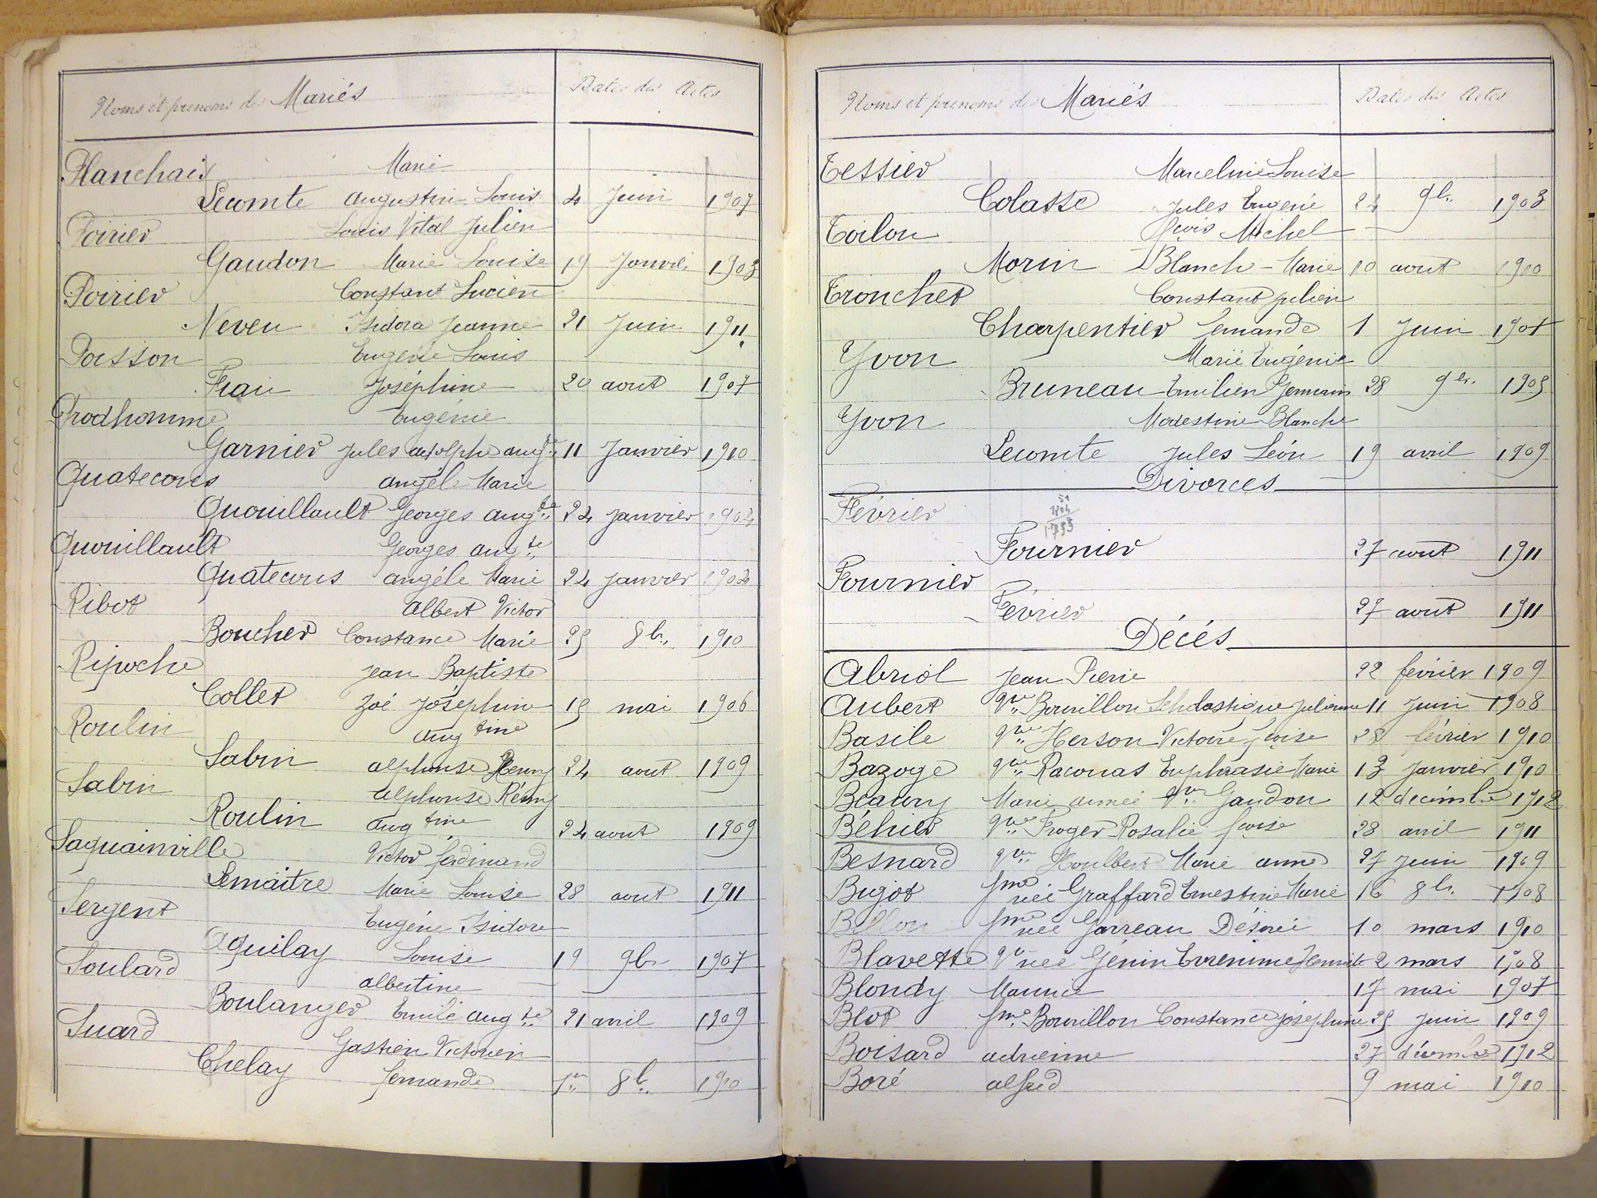 Noms et prenoms des Mariés Dates des Actes
Planchais Marie
Lecomte Augustin Louis 4 Juin 1907
Poirier Louis Vital Julien
Gaudon Marie Louise 19 Janvier 1903
Poirier Constant Lucien
Neveu Isidora Jeanne 21 Juin 1911
Poisson Eugénie Louis
Frau Joséphine 20 aout 1907
Prodhomme Eugénie
Garnier Jules adolphe augte 11 Janvier 1910
Quatecous angèle Marie
Quouillault Georges augte 24 janvier 1904
Quouillault Georges augte
Quatecous angèle Marie 24 janvier 1904
Ribot Albert Victor
Boucher Constance Marie 29 8bre 1910
Ripoche Jean Baptiste
Collet Zoé Joséphine 19 mai 1906
Roulin Augtine
Sabin alphonse Rémy 24 aout 1909
Sabin Alphonse Rémy
Roulin Augtine 24 aout 1909
Saquainville Victor ferdinand
Lemaitre Marie Louise 28 aout 1911
Sergent Eugène Isidore
Aquilay Louise 19 9bre 1907
Soulard albertine
Boulanger Emile augte 21 avril 1909
Suard Gastien Victorien
Chelay fernande 1er 8bre 1910
Noms et prenoms des Mariés Dates des Actes
Tessier Marceline Louise
Colasse Jules Eugène 24 9bre 1903
Toilon fçois Michel
Morin Blanche-Marie 10 aout 1910
Tronchet Constant julien
Charpentier fernande 1 Juin 1907
Yvon Marie Eugénie
Bruneau Emilien Germain 28 9bre 1905
Yvon Modestine Blanche
Lecomte Jules Léon 19 avril 1909
Divorces
Février
Fournier 27 aout 1911
Fournier
Février 27 aout 1911
Décés
Abriol Jean Pierre 22 février 1909
Aubert Vve Bourillon Scholastique Julienne 11 Juin 1908
Basile Vve Herson Victoire fçoise 28 février 1910
Bazoge Vve Raconas Euphrasie Marie 13 Janvier 1910
Beaury Marie aimée Vve Gaudon 12 decémbre 1912
Béhier Vve Froger Rosalie fçoise 28 avril 1911
Besnard Vve Houlbert Marie anne 27 Juin 1909
Bigot fme née Graffard Ernestine Marie 16 8bre 1908
Billon fme née Garreau Désirée 10 mars 1910
Blavette Vve née Génin Eurenime Henriette 2 mars 1908
Blondy Maurice 17 mai 1907
Blot fme Bourillon Constance joséphine 29 Juin 1909
Boisard adrienne 27 décembre 1912
Boré alfred 9 mai 1910